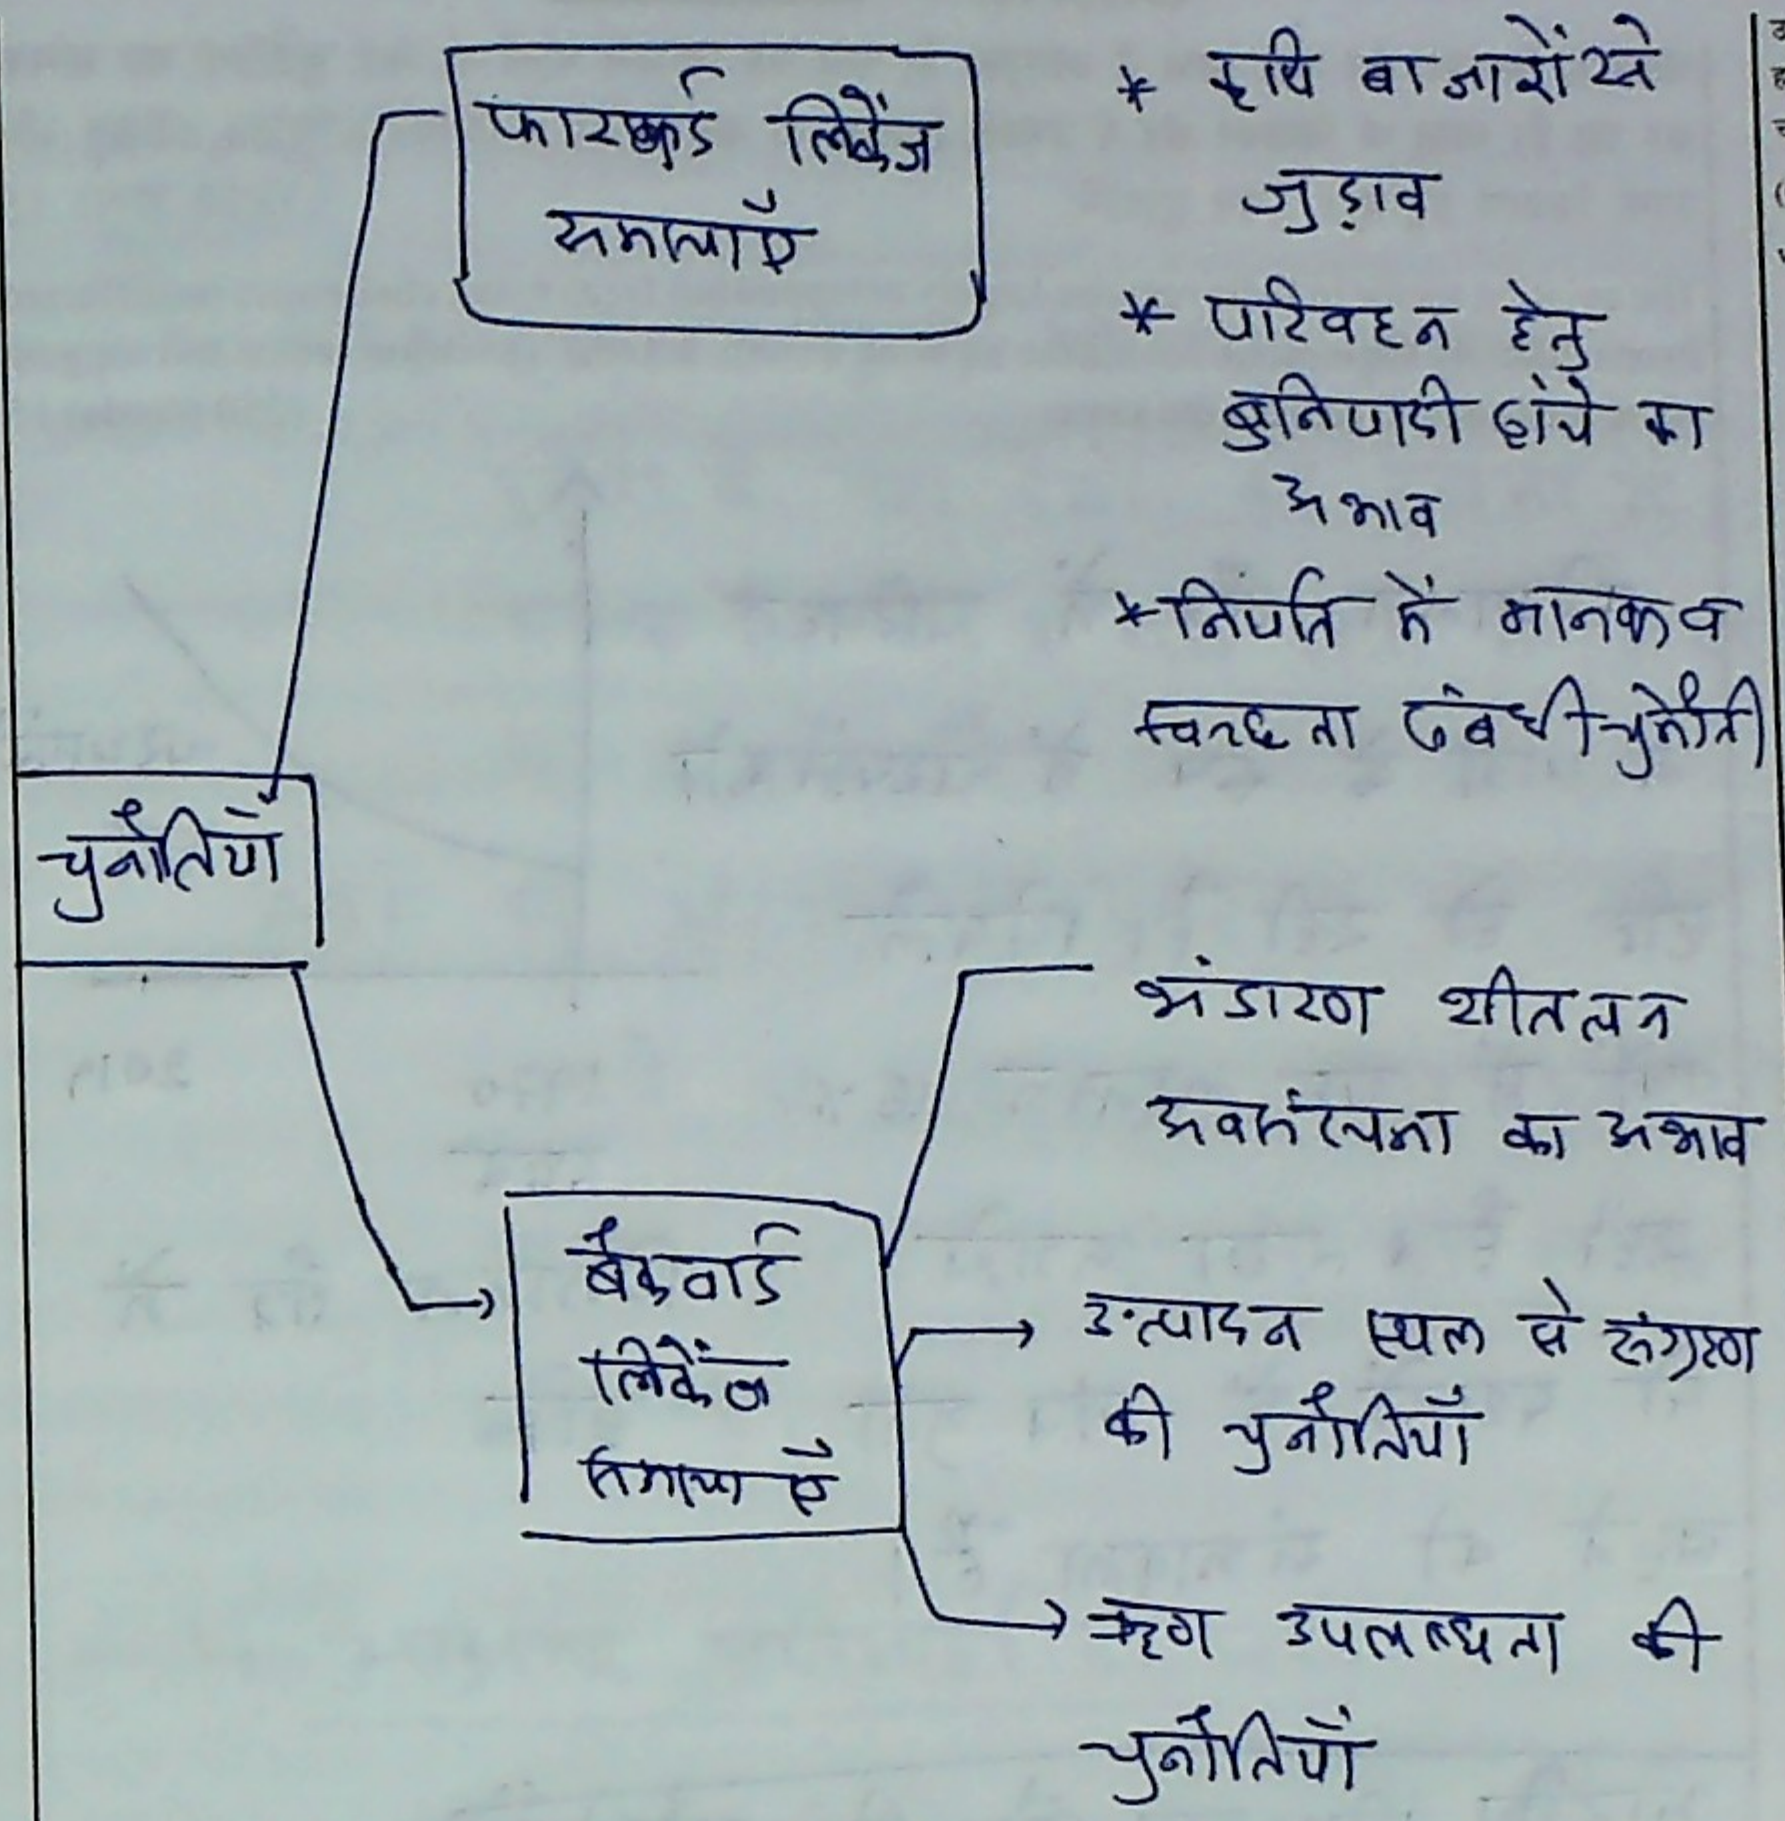 फारवर्ड लिंकेज
समस्याएँ
* कृषि बाजारों से
जुड़ाव
* परिवहन हेतु
बुनियादी ढांचे का
अभाव
* निर्यात में मानक व
स्वच्छता संबंधी चुनौती
चुनौतियाँ
बैकवार्ड
लिंकेज
समस्याएँ
भंडारण शीतलन
अवसंरचना का अभाव
उत्पादन स्थल से संग्रहण
की चुनौतियाँ
ऋण उपलब्धता की
चुनौतियाँ